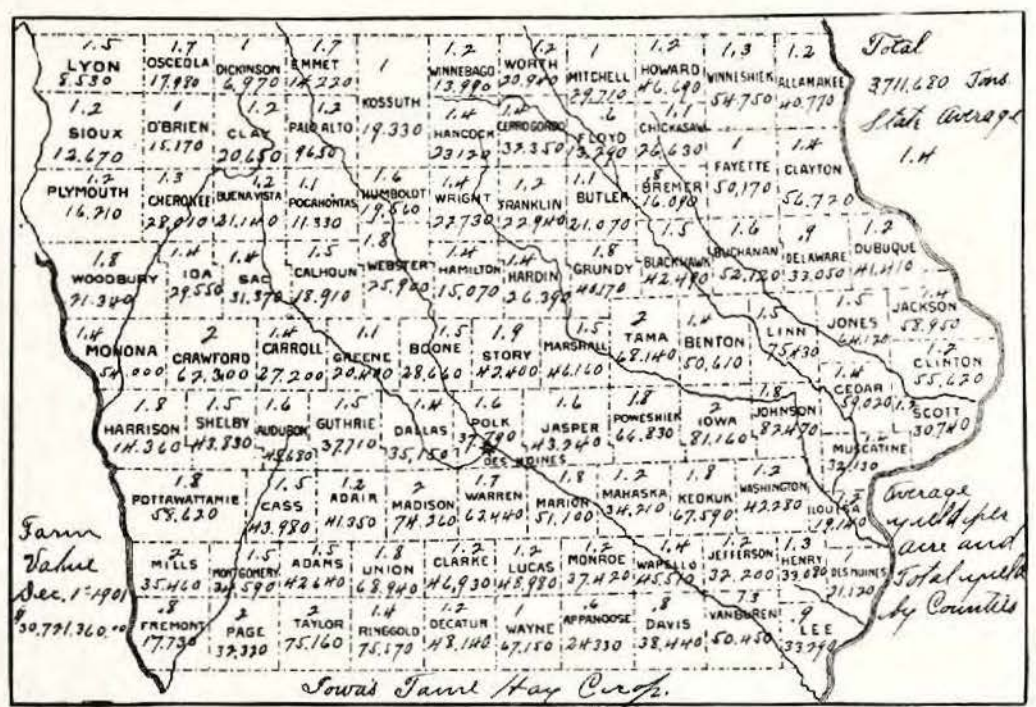 1.5
LYON
8.530
1.7
OSCEOLA
17.980
1
DICKINSON
6,970
1.7
EMMET
14.220
1
KOSSUTH
19.330
1.2
WINNEBAGO
13.990
1.2
WORTH
20.940
1
MITCHELL
29.710
1.2
HOWARD
46.690
1.3
WINNESHIEK
54.750
1.2
ALLAMAKEE
40.770
Total
3711,680 Tons
State Average
1.4
1.2
SIOUX
12.670
1
O'BRIEN
15.170
1.2
CLAY
20.650
1.2
PALO ALTO
9650
1.4
HANCOCK
23120
1.4
CERRO GORDO
32.350
.6
FLOYD
13.290
1.1
CHICKASAW
26.630
1
FAYETTE
50,170
1.4
CLAYTON
56.720
1.2
PLYMOUTH
16.210
1.3
CHEROKEE
28.010
1.2
BUENA VISTA
21.140
1.1
POCAHONTAS
11.330
1.6
HUMBOLDT
19.560
1.4
WRIGHT
22.730
1.2
FRANKLIN
22940
1.1
BUTLER
21.070
.8
BREMER
16.090
1.8
WOODBURY
21.340
1.4
IDA
29.550
1.4
SAC
31.370
1.5
CALHOUN
18.910
1.8
WEBSTER
25.900
1.4
HAMILTON
15,070
1.4
HARDIN
26.390
1.8
GRUNDY
40.170
1.5
BLACKHAWK
42.490
1.6
BUCHANAN
52.120
.9
DELAWARE
33.050
1.2
DUBUQUE
41.410
1.4
MONONA
54.000
2
CRAWFORD
62.300
1.4
CARROLL
27.200
1.1
GREENE
20.400
1.5
BOONE
28.660
1.9
STORY
42.400
1.5
MARSHALL
46.160
2
TAMA
68.140
1.4
BENTON
50,610
1.5
LINN
75.430
1.5
JONES
64.120
1.4
JACKSON
58.950
1.8
HARRISON
14.360
1.5
SHELBY
43.830
1.6
AUDUBON
48.680
1.5
GUTHRIE
37.710
1.4
DALLAS
35,150
1.6
POLK
37.790
DES MOINES
1.6
JASPER
43.240
1.8
POWESHIEK
66.830
2
IOWA
81.160
1.8
JOHNSON
82.470
1.4
CEDAR
59.020
1.2
CLINTON
55.620
1.2
SCOTT
30.740
1.2
MUSCATINE
32.130
1.8
POTTAWATTAMIE
58.620
1.5
CASS
43.980
1.2
ADAIR
41.350
2
MADISON
74.260
1.7
WARREN
62.440
1.8
MARION
51.100
1.2
MAHASKA
34.210
1.8
KEOKUK
67.590
1.2
WASHINGTON
42.280
1.2
LOUISA
19.140
Average
yield per
acre and
Total yield
by Counties
Farm
Value
Dec. 1st 1901
$30,721,360.00
2
MILLS
35.460
1.5
MONTGOMERY
1.5
ADAMS
42640
1.8
UNION
68.940
1.2
CLARKE
46,930
1.2
LUCAS
48,980
1.2
MONROE
37.420
1.4
WAPELLO
45.510
1.2
JEFFERSON
32.200
1.3
HENRY
33.080
1
DES MOINES
21.120
.8
FREMONT
17.730
2
PAGE
32.320
2
TAYLOR
75.160
1.4
RINGGOLD
75.570
1.2
DECATUR
48.140
1
WAYNE
67.150
.6
APPANOOSE
24330
.8
DAVIS
38.440
VANBUREN
50.450
.9
LEE
33.290
Iowa's Tame Hay Crop.